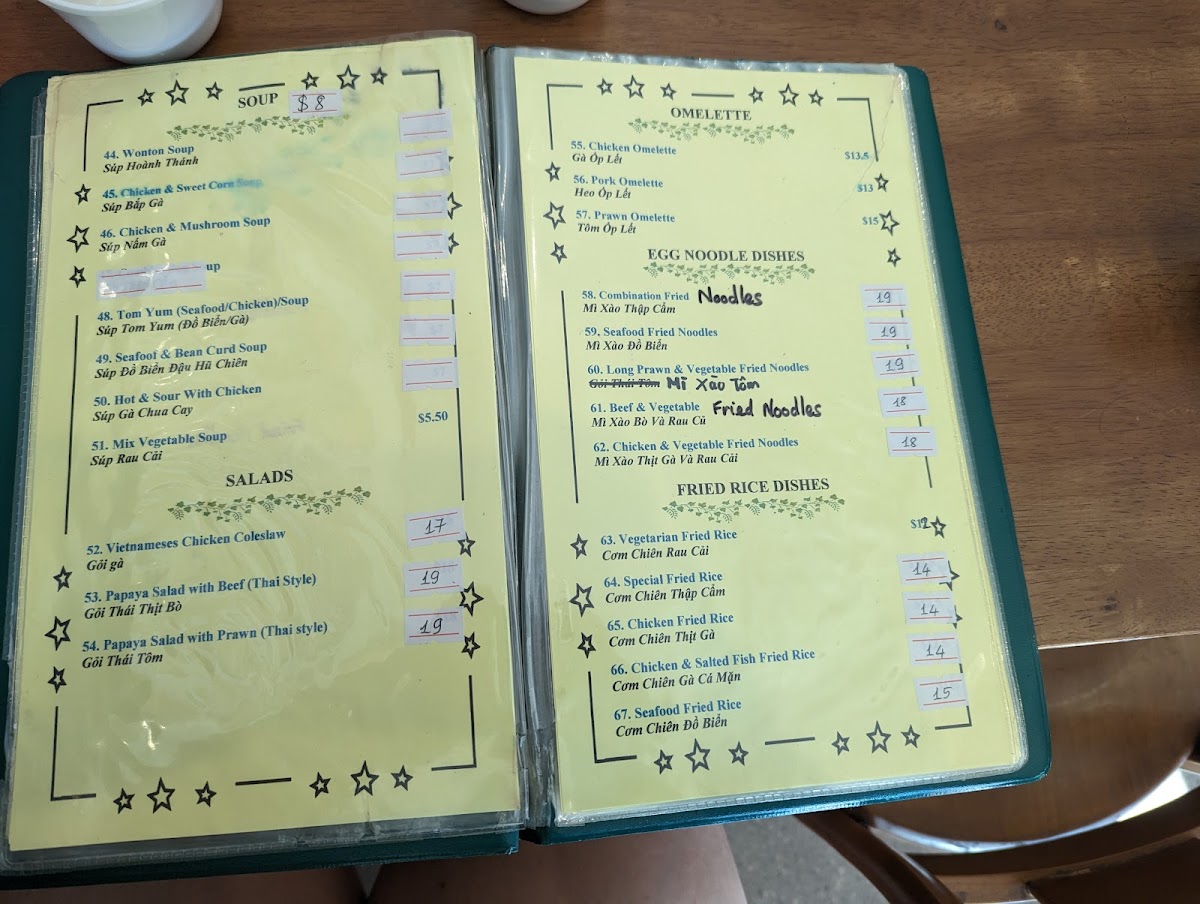 SOUP $8
44. Wonton Soup
Súp Hoành Thánh
45. Chicken & Sweet Corn Soup
Súp Bắp Gà
46. Chicken & Mushroom Soup
Súp Nấm Gà
up
48. Tom Yum (Seafood/Chicken)/Soup
Súp Tom Yum (Đồ Biển/Gà)
49. Seafoot & Bean Curd Soup
Súp Đồ Biển Đậu Hũ Chiên
50. Hot & Sour With Chicken
Súp Gà Chua Cay
$5.50
51. Mix Vegetable Soup
Súp Rau Cải
SALADS
52. Vietnameses Chicken Coleslaw 17
Gỏi gà
53. Papaya Salad with Beef (Thai Style) 19
Gỏi Thái Thịt Bò
54. Papaya Salad with Prawn (Thai style) 19
Gỏi Thái Tôm
OMELETTE
55. Chicken Omelette $13.5
Gà Óp Lết
56. Pork Omelette $13
Heo Óp Lết
57. Prawn Omelette $15
Tôm Óp Lết
EGG NOODLE DISHES
58. Combination Fried Noodles 19
Mì Xào Thập Cẩm
59. Seafood Fried Noodles 19
Mì Xào Đồ Biển
60. Long Prawn & Vegetable Fried Noodles 19
Gỏi Thái Tôm Mì Xào Tôm
61. Beef & Vegetable Fried Noodles 18
Mì Xào Bò Và Rau Củ
62. Chicken & Vegetable Fried Noodles 18
Mì Xào Thịt Gà Và Rau Cải
FRIED RICE DISHES
63. Vegetarian Fried Rice $12
Cơm Chiên Rau Cải
64. Special Fried Rice 14
Cơm Chiên Thập Cẩm
65. Chicken Fried Rice 14
Cơm Chiên Thịt Gà
66. Chicken & Salted Fish Fried Rice 14
Cơm Chiên Gà Cá Mặn
67. Seafood Fried Rice 15
Cơm Chiên Đồ Biển